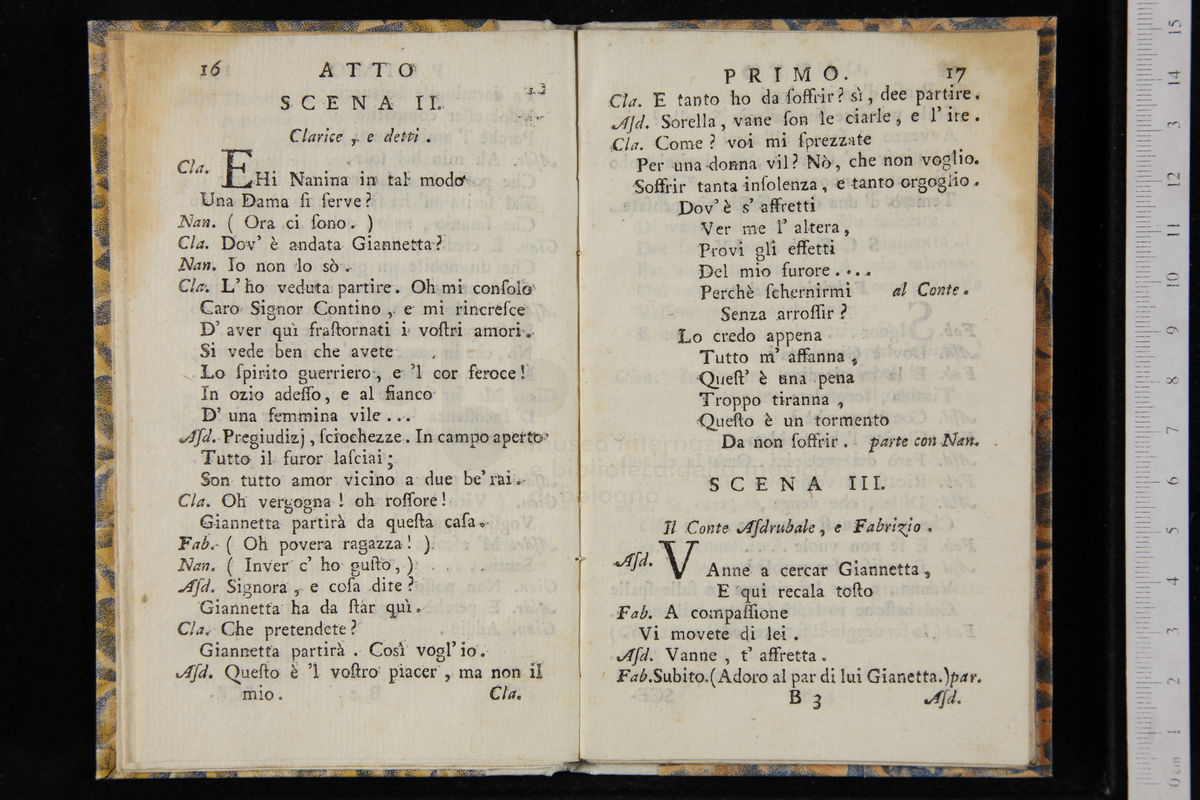 16 ATTO
SCENA II.
Clarice, e detti.
Cla. EHi Nanina in tal modo
Una Dama ſi ſerve?
Nan. ( Ora ci ſono. )
Cla. Dov' è andata Giannetta?
Nan. Io non lo sò.
Cla. L' ho veduta partire. Oh mi conſolo
Caro Signor Contino, e mi rincreſce
D' aver quì fraſtornati i voſtri amori.
Si vede ben che avete
Lo ſpirito guerriero, e 'l cor feroce!
In ozio adeſſo, e al fianco
D' una femmina vile...
Aſd. Pregiudizj, ſciochezze. In campo aperto
Tutto il furor laſciai;
Son tutto amor vicino a due be' rai.
Cla. Oh vergogna! oh roſſore!
Giannetta partirà da queſta caſa.
Fab. ( Oh povera ragazza! )
Nan. ( Inver c' ho guſto, )
Aſd. Signora, e coſa dite?
Giannetta ha da ſtar quì.
Cla. Che pretendete?
Giannetta partirà. Così vogl' io.
Aſd. Queſto è 'l voſtro piacer, ma non il
mio. Cla.
PRIMO. 17
Cla. E tanto ho da ſoffrir? sì, dee partire.
Aſd. Sorella, vane ſon le ciarle, e l' ire.
Cla. Come? voi mi ſprezzate
Per una donna vil? Nò, che non voglio.
Soffrir tanta inſolenza, e tanto orgoglio.
Dov' è s' affretti
Ver me l' altera,
Provi gli effetti
Del mio furore....
Perchè ſchernirmi al Conte.
Senza arroſſir?
Lo credo appena
Tutto m' affanna,
Queſt' è una pena
Troppo tiranna,
Queſto è un tormento
Da non ſoffrir. parte con Nan.
SCENA III.
Il Conte Aſdrubale, e Fabrizio.
Aſd. VAnne a cercar Giannetta,
E qui recala toſto
Fab. A compaſſione
Vi movete di lei.
Aſd. Vanne, t' affretta.
Fab. Subito. (Adoro al par di lui Gianetta.) par.
B 3 Aſd.